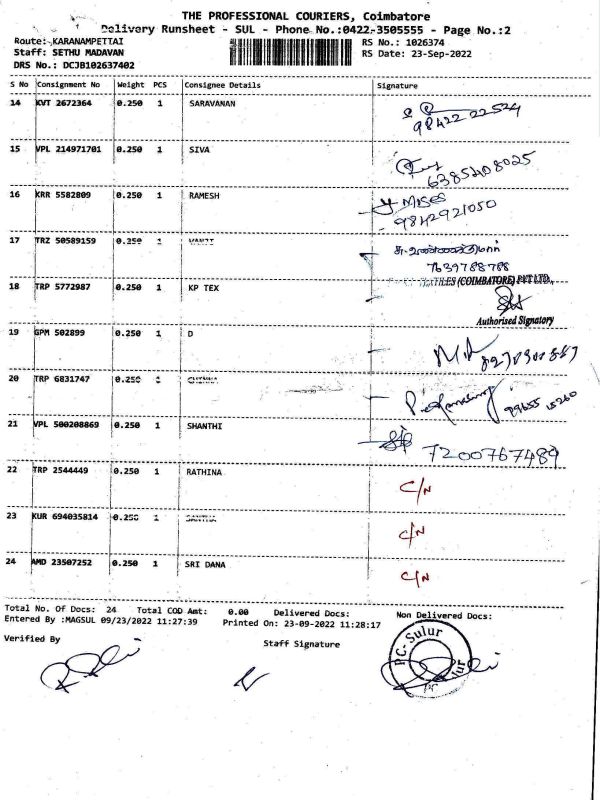 THE PROFESSIONAL COURIERS, Coimbatore
Delivery Runsheet - SUL - Phone No.:0422-3505555 - Page No.:2
Route: KARANAMPETTAI RS No.: 1026374
Staff: SETHU MADAVAN RS Date: 23-Sep-2022
DRS No.: DCJB102637402
S No Consignment No Weight PCS Consignee Details Signature
14 KVT 2672364 0.250 1 SARAVANAN
98422 22524
15 VPL 214971701 0.250 1 SIVA
6385408025
16 KRR 5582809 0.250 1 RAMESH
9842921050
17 TRZ 50589159 0.250 1
7639788788
18 TRP 5772987 0.250 1 KP TEX
(COIMBATORE) PVT LTD.,
Authorised Signatory
19 GPM 502899 0.250 1 D
20 TRP 6831747 0.250 1
99655 15260
21 VPL 500208869 0.250 1 SHANTHI
7200767489
22 TRP 2544449 0.250 1 RATHINA C/N
23 KUR 694035814 0.250 1 C/N
24 AMD 23507252 0.250 1 SRI DANA C/N
Total No. Of Docs: 24 Total COD Amt: 0.00 Delivered Docs: Non Delivered Docs:
Entered By :MAGSUL 09/23/2022 11:27:39 Printed On: 23-09-2022 11:28:17
Verified By Staff Signature
PC- Sulur